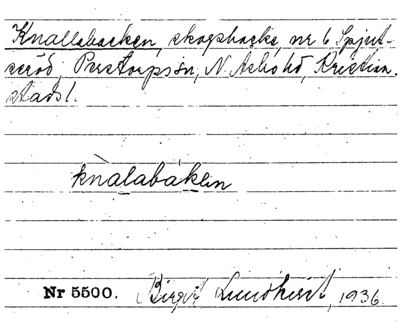 Knallabacken, skogsbacke, nr 6 Spjut-
seröd, Perstorps sn, N. Åsbo hd, Kristian-
stads l.
knalabaken
Nr 5500. Birgit Lundkvist, 1936.